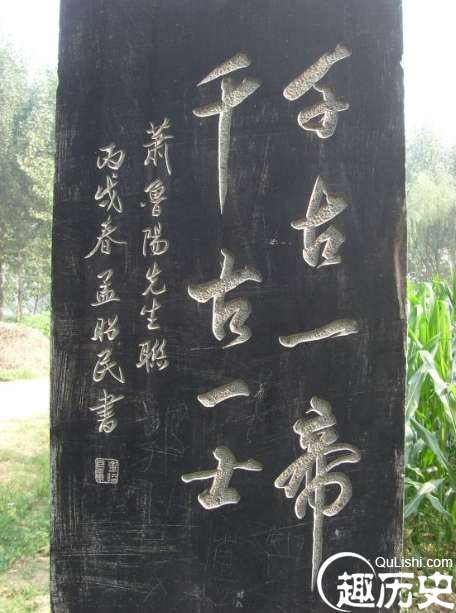 千古一帝
千古一士
萧鲁陽先生聯
丙戌春孟昭民書
QuLishi.com
趣历史